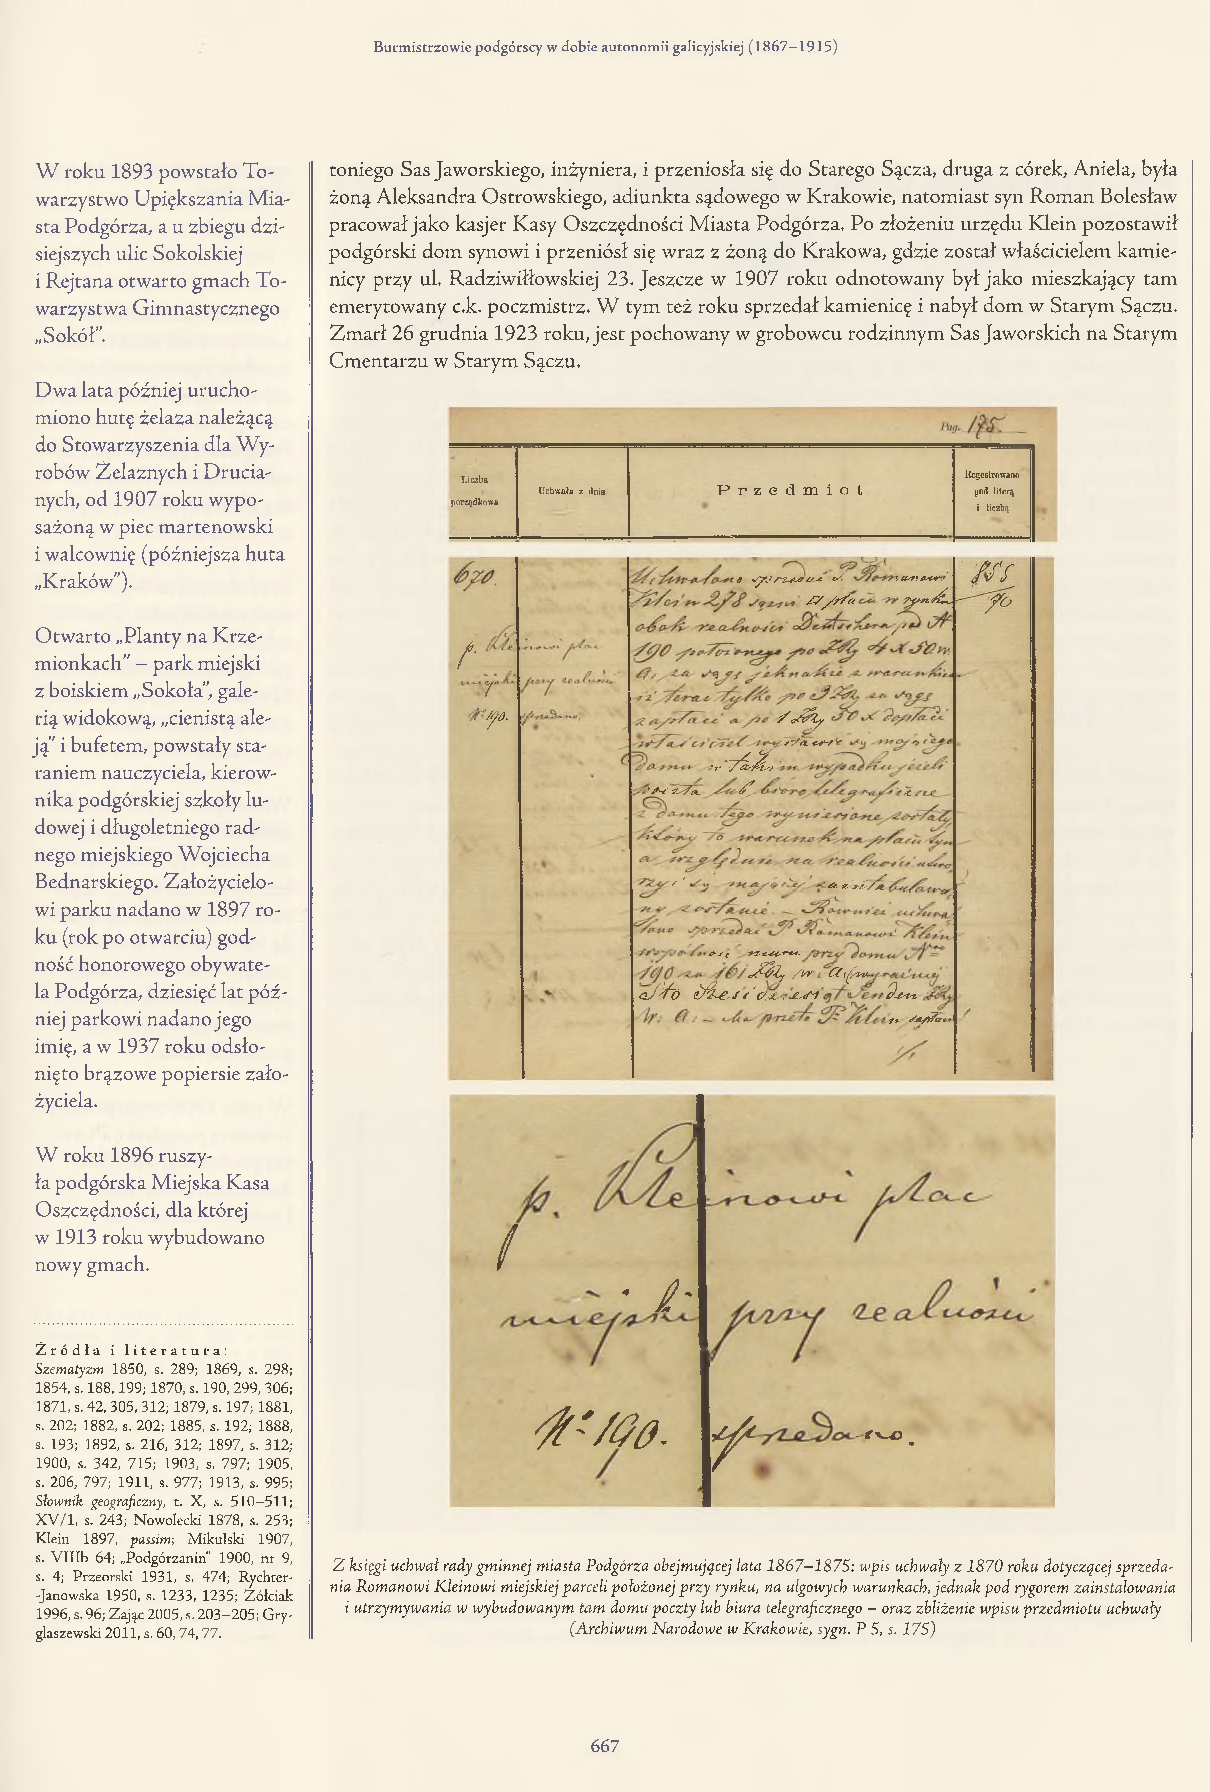 Burmistrzowie podgórscy w dobie autonomii galicyjskiej (1867–1915)
W roku 1893 powstało To-
warzystwo Upiększania Mia-
sta Podgórza, a u zbiegu dzi-
siejszych ulic Sokolskiej
i Rejtana otwarto gmach To-
warzystwa Gimnastycznego
„Sokół”.
Dwa lata później urucho-
miono hutę żelaza należącą
do Stowarzyszenia dla Wy-
robów Żelaznych i Drucia-
nych, od 1907 roku wypo-
sażoną w piec martenowski
i walcownię (późniejsza huta
„Kraków”).
Otwarto „Planty na Krze-
mionkach” – park miejski
z boiskiem „Sokoła”, gale-
rią widokową, „cienistą ale-
ją” i bufetem, powstały sta-
raniem nauczyciela, kierow-
nika podgórskiej szkoły lu-
dowej i długoletniego rad-
nego miejskiego Wojciecha
Bednarskiego. Założycielo-
wi parku nadano w 1897 ro-
ku (rok po otwarciu) god-
ność honorowego obywate-
la Podgórza, dziesięć lat póź-
niej parkowi nadano jego
imię, a w 1937 roku odsło-
nięto brązowe popiersie zało-
życiela.
W roku 1896 ruszy-
ła podgórska Miejska Kasa
Oszczędności, dla której
w 1913 roku wybudowano
nowy gmach.
Źródła i literatura:
Szematyzm 1850, s. 289; 1869, s. 298;
1854, s. 188, 199; 1870, s. 190, 299, 306;
1871, s. 42, 305, 312; 1879, s. 197; 1881,
s. 202; 1882, s. 202; 1885, s. 192; 1888,
s. 193; 1892, s. 216, 312; 1897, s. 312;
1900, s. 342, 715; 1903, s. 797; 1905,
s. 206, 797; 1911, s. 977; 1913, s. 995;
Słownik geograficzny, t. X, s. 510–511;
XV/1, s. 243; Nowolecki 1878, s. 253;
Klein 1897, passim; Mikulski 1907,
s. VIIIb 64; „Podgórzanin” 1900, nr 9,
s. 4; Przeorski 1931, s. 474; Rychter-
-Janowska 1950, s. 1233, 1235; Żółciak
1996, s. 96; Zając 2005, s. 203–205; Gry-
glaszewski 2011, s. 60, 74, 77.
toniego Sas Jaworskiego, inżyniera, i przeniosła się do Starego Sącza, druga z córek, Aniela, była
żoną Aleksandra Ostrowskiego, adiunkta sądowego w Krakowie, natomiast syn Roman Bolesław
pracował jako kasjer Kasy Oszczędności Miasta Podgórza. Po złożeniu urzędu Klein pozostawił
podgórski dom synowi i przeniósł się wraz z żoną do Krakowa, gdzie został właścicielem kamie-
nicy przy ul. Radziwiłłowskiej 23. Jeszcze w 1907 roku odnotowany był jako mieszkający tam
emerytowany c.k. poczmistrz. W tym też roku sprzedał kamienicę i nabył dom w Starym Sączu.
Zmarł 26 grudnia 1923 roku, jest pochowany w grobowcu rodzinnym Sas Jaworskich na Starym
Cmentarzu w Starym Sączu.
Pag. 175.
Liczba
porządkowa
Uchwała z dnia
Przedmiot
Regestrowano
pod literą
i liczbą
670.
p. Kleinowi plac
miejski przy realności
Nº 190. sprzedano.
855
70
Uchwalono sprzedać P. Romanowi
Klein 278 sążni □ placu w rynku
obok realności pod N
190 położonego po 4 X 50 w
a, za sągę jednakże z warunkiem
iż teraz tylko po 3 za sągę
zapłaci a po 1 50 X dopłaci
właściciel wystawić się mającego
domu w takim wypadku jeżeli
poczta lub bióro telegraficzne
z domu tego wyniesione zostały
który to warunek na placu tym
a względnie na realności utwo
rzyć się mającej zaintabulowa
ny zostanie. – Również uchwa
lono sprzedać P. Romanowi Klein
wspólność muru przy domu Nro
190 za 161 w. a. wyraźniej
Sto Sześćdziesiąt Jenden
W: A: – Ma przeto P. Klein zapłacić
p. Kleinowi plac
miejski przy realności
Nº 190. sprzedano.
Z księgi uchwał rady gminnej miasta Podgórza obejmującej lata 1867–1875: wpis uchwały z 1870 roku dotyczącej sprzeda-
nia Romanowi Kleinowi miejskiej parceli położonej przy rynku, na ulgowych warunkach, jednak pod rygorem zainstalowania
i utrzymywania w wybudowanym tam domu poczty lub biura telegraficznego – oraz zbliżenie wpisu przedmiotu uchwały
(Archiwum Narodowe w Krakowie, sygn. P 5, s. 175)
667